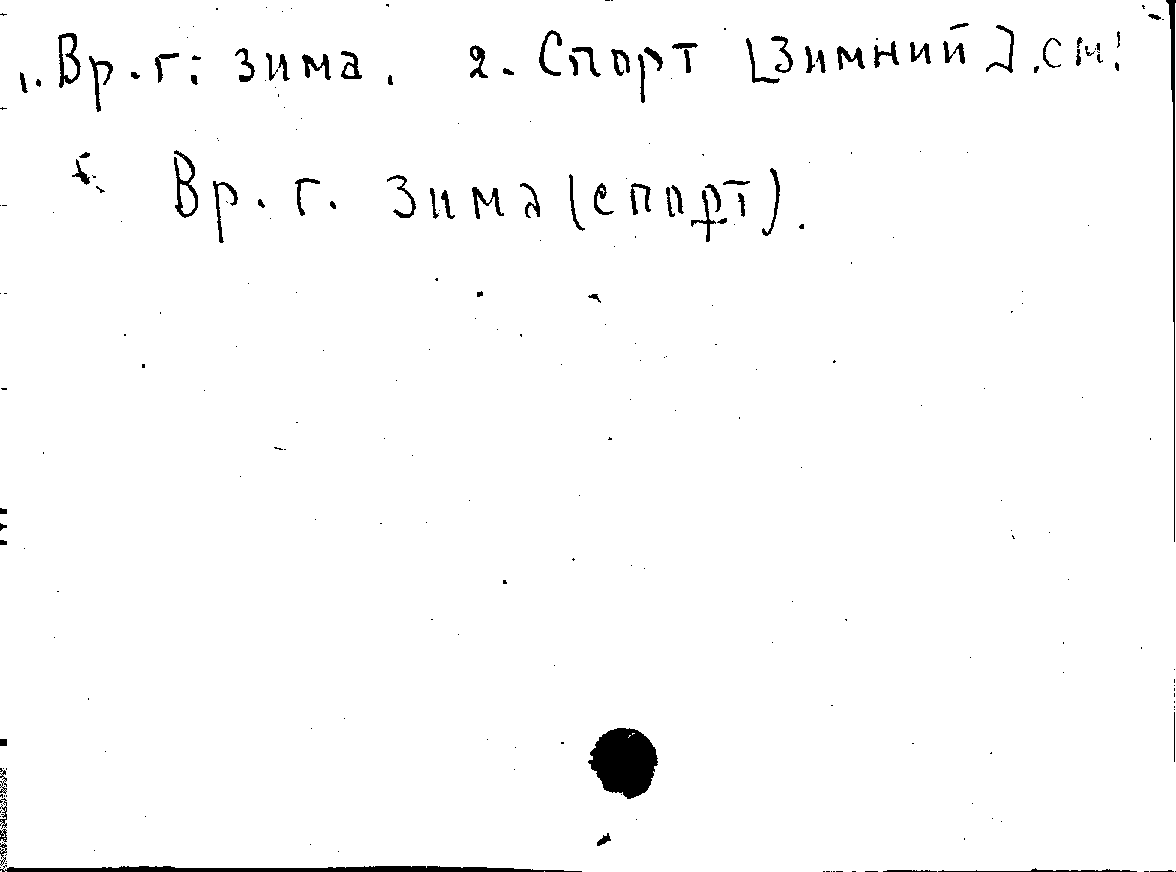 1. Вр. г: зима. 2. Спорт [Зимний]. см:
Вр. г. Зима (спорт).